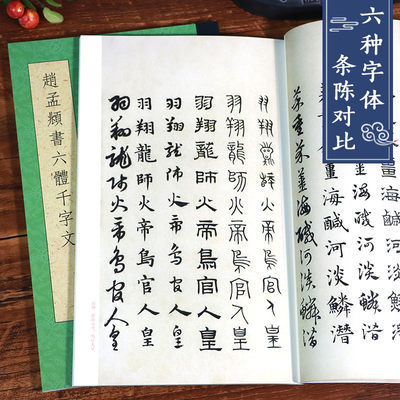 六种字体
条陈对比
海鹹河淡鱗潛
薑海鹹河淡鱗潛
薑海鹹河淡鱗潛
菜重芥薑海鹹河淡鱗潛
羽翔龍師火帝鳥官人皇
羽翔龍師火帝鳥官人皇
羽翔龍師火帝鳥官人皇
羽翔龍師火帝鳥官人皇
羽翔龍師火帝鳥官人皇
羽翔龍師火帝鳥官人皇
趙孟頫書六體千字文